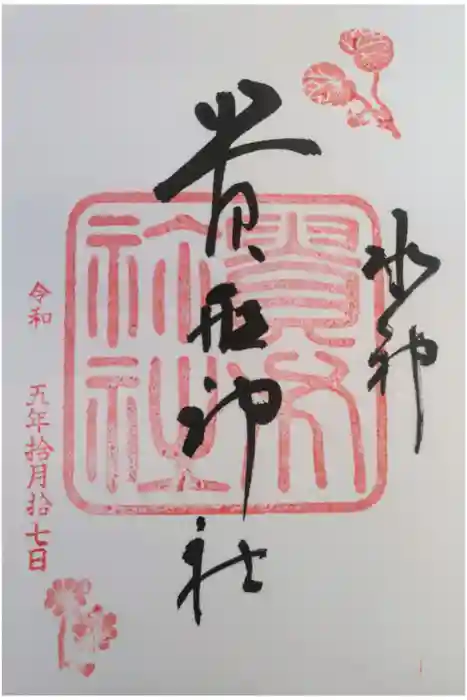 水神
貴船神社
貴布祢社
令和 五年拾月拾七日